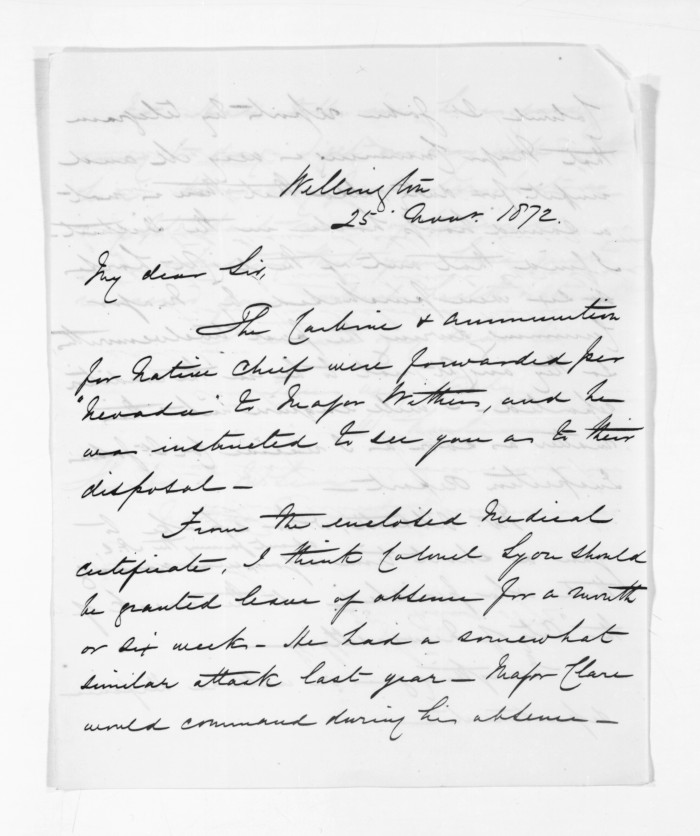 Wellington
25 Novr. 1872.
My dear Sir,
The Carbine & ammunition
for Native Chief were forwarded per
"Nevada" to Major Withers, and he
was instructed to see you as to their
disposal -
From the enclosed Medical
certificate, I think Colonel Lyon should
be granted leave of absence for a month
or six weeks - He had a somewhat
similar attack last year - Major Clare
would command during his absence -